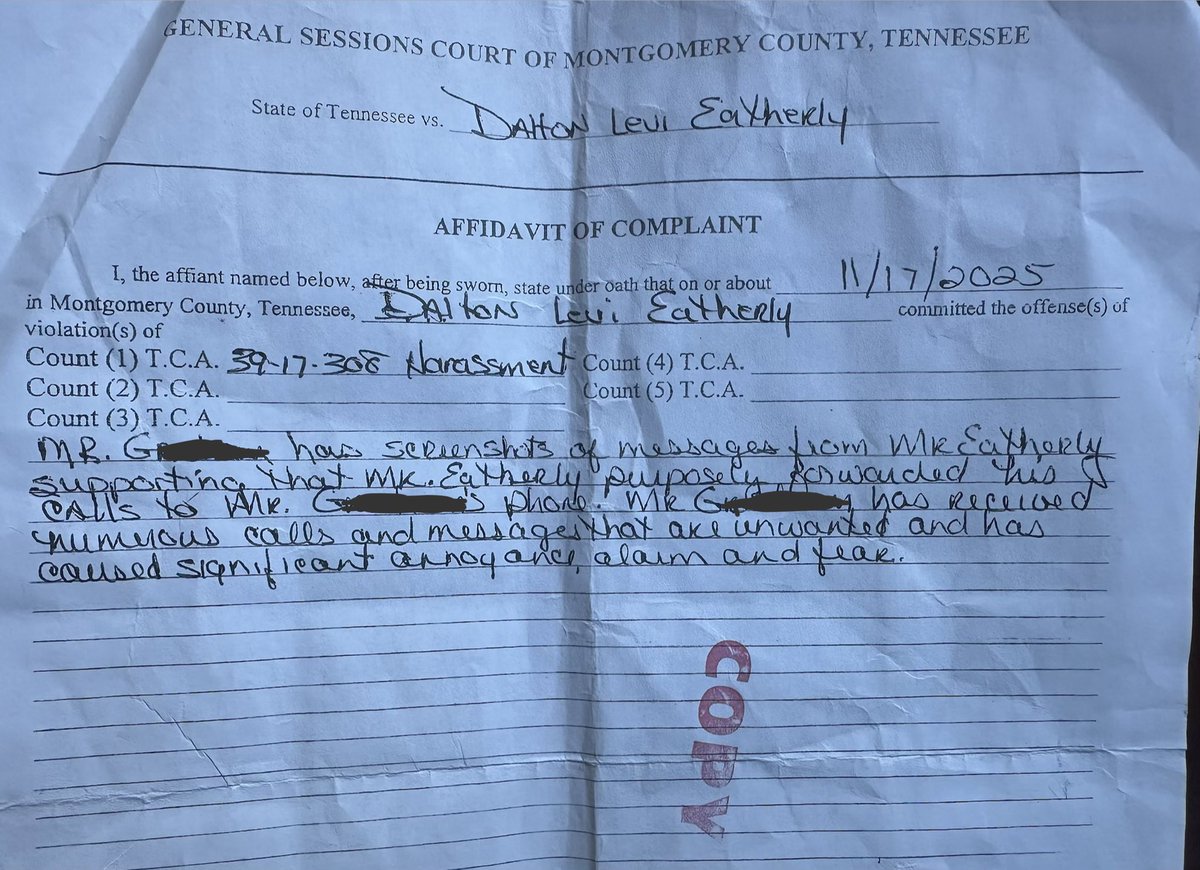 GENERAL SESSIONS COURT OF MONTGOMERY COUNTY, TENNESSEE
State of Tennessee vs. Dalton Levi Eatherly
AFFIDAVIT OF COMPLAINT
I, the affiant named below, after being sworn, state under oath that on or about 11/17/2025
in Montgomery County, Tennessee, Dalton Levi Eatherly committed the offense(s) of
violation(s) of
Count (1) T.C.A. 39-17-308 Harassment Count (4) T.C.A.
Count (2) T.C.A. Count (5) T.C.A.
Count (3) T.C.A.
MR. G has screenshots of messages from Mr Eatherly
supporting that Mr. Eatherly purposely forwarded his
calls to Mr. G's phone. Mr G has received
numerous calls and messages that are unwanted and has
caused significant annoyance, alarm and fear.
COPY